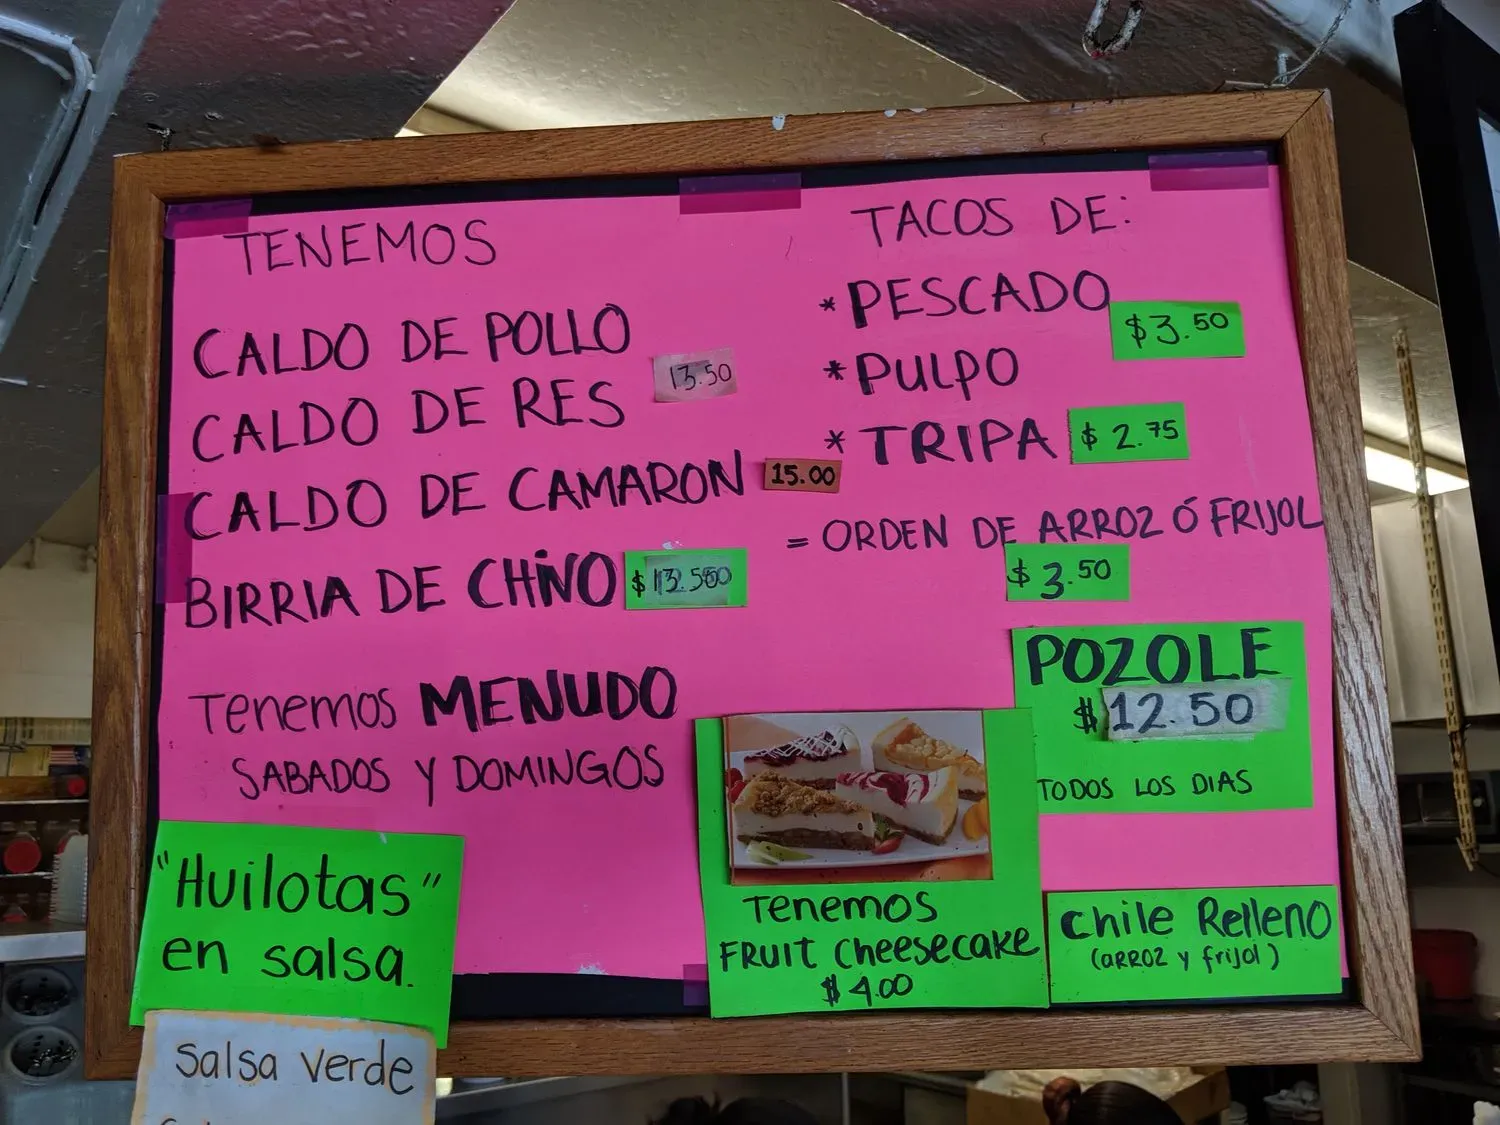 TENEMOS
CALDO DE POLLO
13.50
CALDO DE RES
CALDO DE CAMARON 15.00
BIRRIA DE CHIVO
Tenemos MENUDO
SABADOS Y DOMINGOS
"Huilotas"
en salsa.
Salsa verde
TACOS DE:
* PESCADO
$3.50
* PULPO
* TRIPA $2.75
= ORDEN DE ARROZ Ó FRIJOL
$3.50
POZOLE
$12.50
TODOS LOS DIAS
Tenemos
FRUIT Cheesecake
$4.00
Chile Relleno
(arroz y frijol)